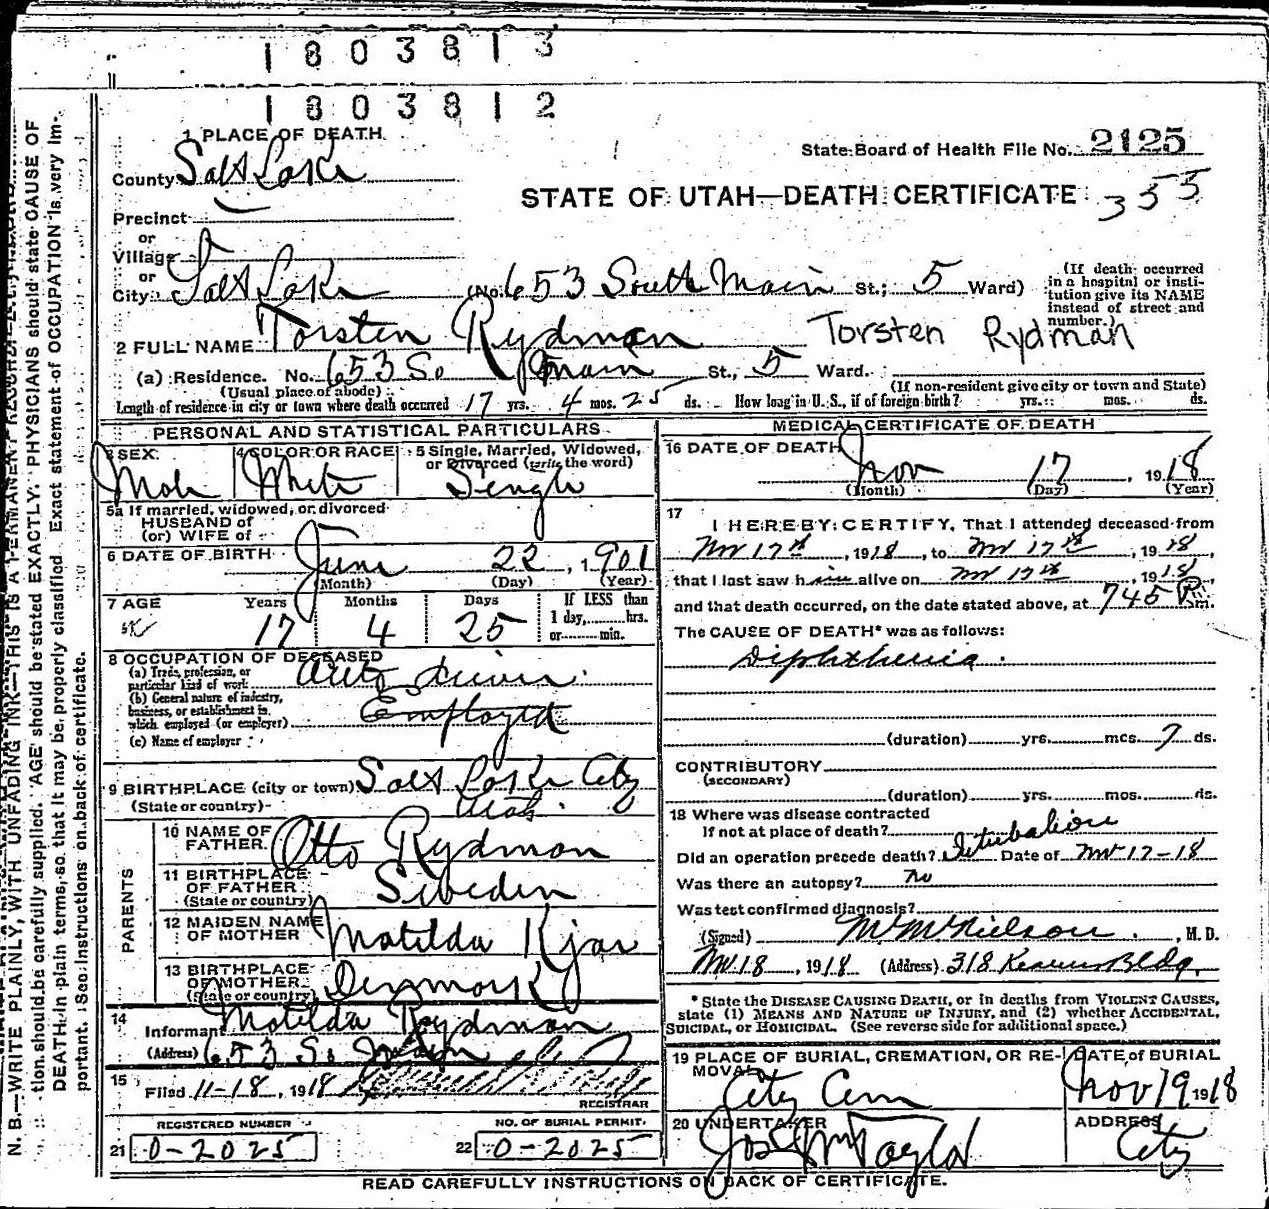 1803813
1803812
1 PLACE OF DEATH
State Board of Health File No. 2125
County Salt Lake
STATE OF UTAH—DEATH CERTIFICATE 355
Precinct
or
Village
or
City Salt Lake (No. 653 South Main St.; 5 Ward) (If death occurred in a hospital or institution give its NAME instead of street and number.)
2 FULL NAME Torsten Rydman Torsten Rydman
(a) Residence. No. 653 So Main St., 5 Ward.
(Usual place of abode) (If non-resident give city or town and State)
Length of residence in city or town where death occurred 17 yrs. 4 mos. 25 ds. How long in U. S., if of foreign birth? yrs. mos. ds.
PERSONAL AND STATISTICAL PARTICULARS
3 SEX Male
4 COLOR OR RACE White
5 Single, Married, Widowed, or Divorced (write the word) Single
5a If married, widowed, or divorced
HUSBAND of
(or) WIFE of
6 DATE OF BIRTH June 22, 1901
(Month) (Day) (Year)
7 AGE Years Months Days If LESS than
17 4 25 1 day, hrs.
or min.
8 OCCUPATION OF DECEASED
(a) Trade, profession, or
particular kind of work Auto
(b) General nature of industry,
business, or establishment in
which employed (or employer) Employed
(c) Name of employer
9 BIRTHPLACE (city or town) Salt Lake City
(State or country) Utah
PARENTS
10 NAME OF FATHER Otto Rydman
11 BIRTHPLACE OF FATHER (State or country) Sweden
12 MAIDEN NAME OF MOTHER Matilda Kjar
13 BIRTHPLACE OF MOTHER (State or country) Denmark
14
Informant Matilda Rydman
(Address) 653 So Main
15 Filed 11-18, 1918
REGISTRAR
REGISTERED NUMBER NO. OF BURIAL PERMIT.
21 0-2025 22 0-2025
MEDICAL CERTIFICATE OF DEATH
16 DATE OF DEATH
Nov 17, 1918
(Month) (Day) (Year)
17
I HEREBY CERTIFY, That I attended deceased from
Nov 17th, 1918, to Nov 17th, 1918,
that I last saw him alive on Nov 17th, 1918,
and that death occurred, on the date stated above, at 745 P.m.
The CAUSE OF DEATH* was as follows:
Diphtheria.
(duration) yrs. mos. 7 ds.
CONTRIBUTORY
(SECONDARY)
(duration) yrs. mos. ds.
18 Where was disease contracted
If not at place of death?
Did an operation precede death? Intubation Date of Nov 17-18
Was there an autopsy? no
Was test confirmed diagnosis?
(Signed) M. McNielson, M. D.
Nov 18, 1918 (Address) 318 Kearns Bldg.
* State the DISEASE CAUSING DEATH, or in deaths from VIOLENT CAUSES,
state (1) MEANS AND NATURE OF INJURY, and (2) whether ACCIDENTAL,
SUICIDAL, or HOMICIDAL. (See reverse side for additional space.)
19 PLACE OF BURIAL, CREMATION, OR REMOVAL City Cem
DATE of BURIAL Nov 19 1918
20 UNDERTAKER Jos Wm Taylor
ADDRESS City
READ CAREFULLY INSTRUCTIONS ON BACK OF CERTIFICATE.
N. B.—WRITE PLAINLY, WITH UNFADING INK—THIS IS A PERMANENT RECORD.
tion should be carefully supplied. AGE should be stated EXACTLY. PHYSICIANS should state CAUSE OF
DEATH in plain terms, so that it may be properly classified. Exact statement of OCCUPATION is very im-
portant. See instructions on back of certificate.